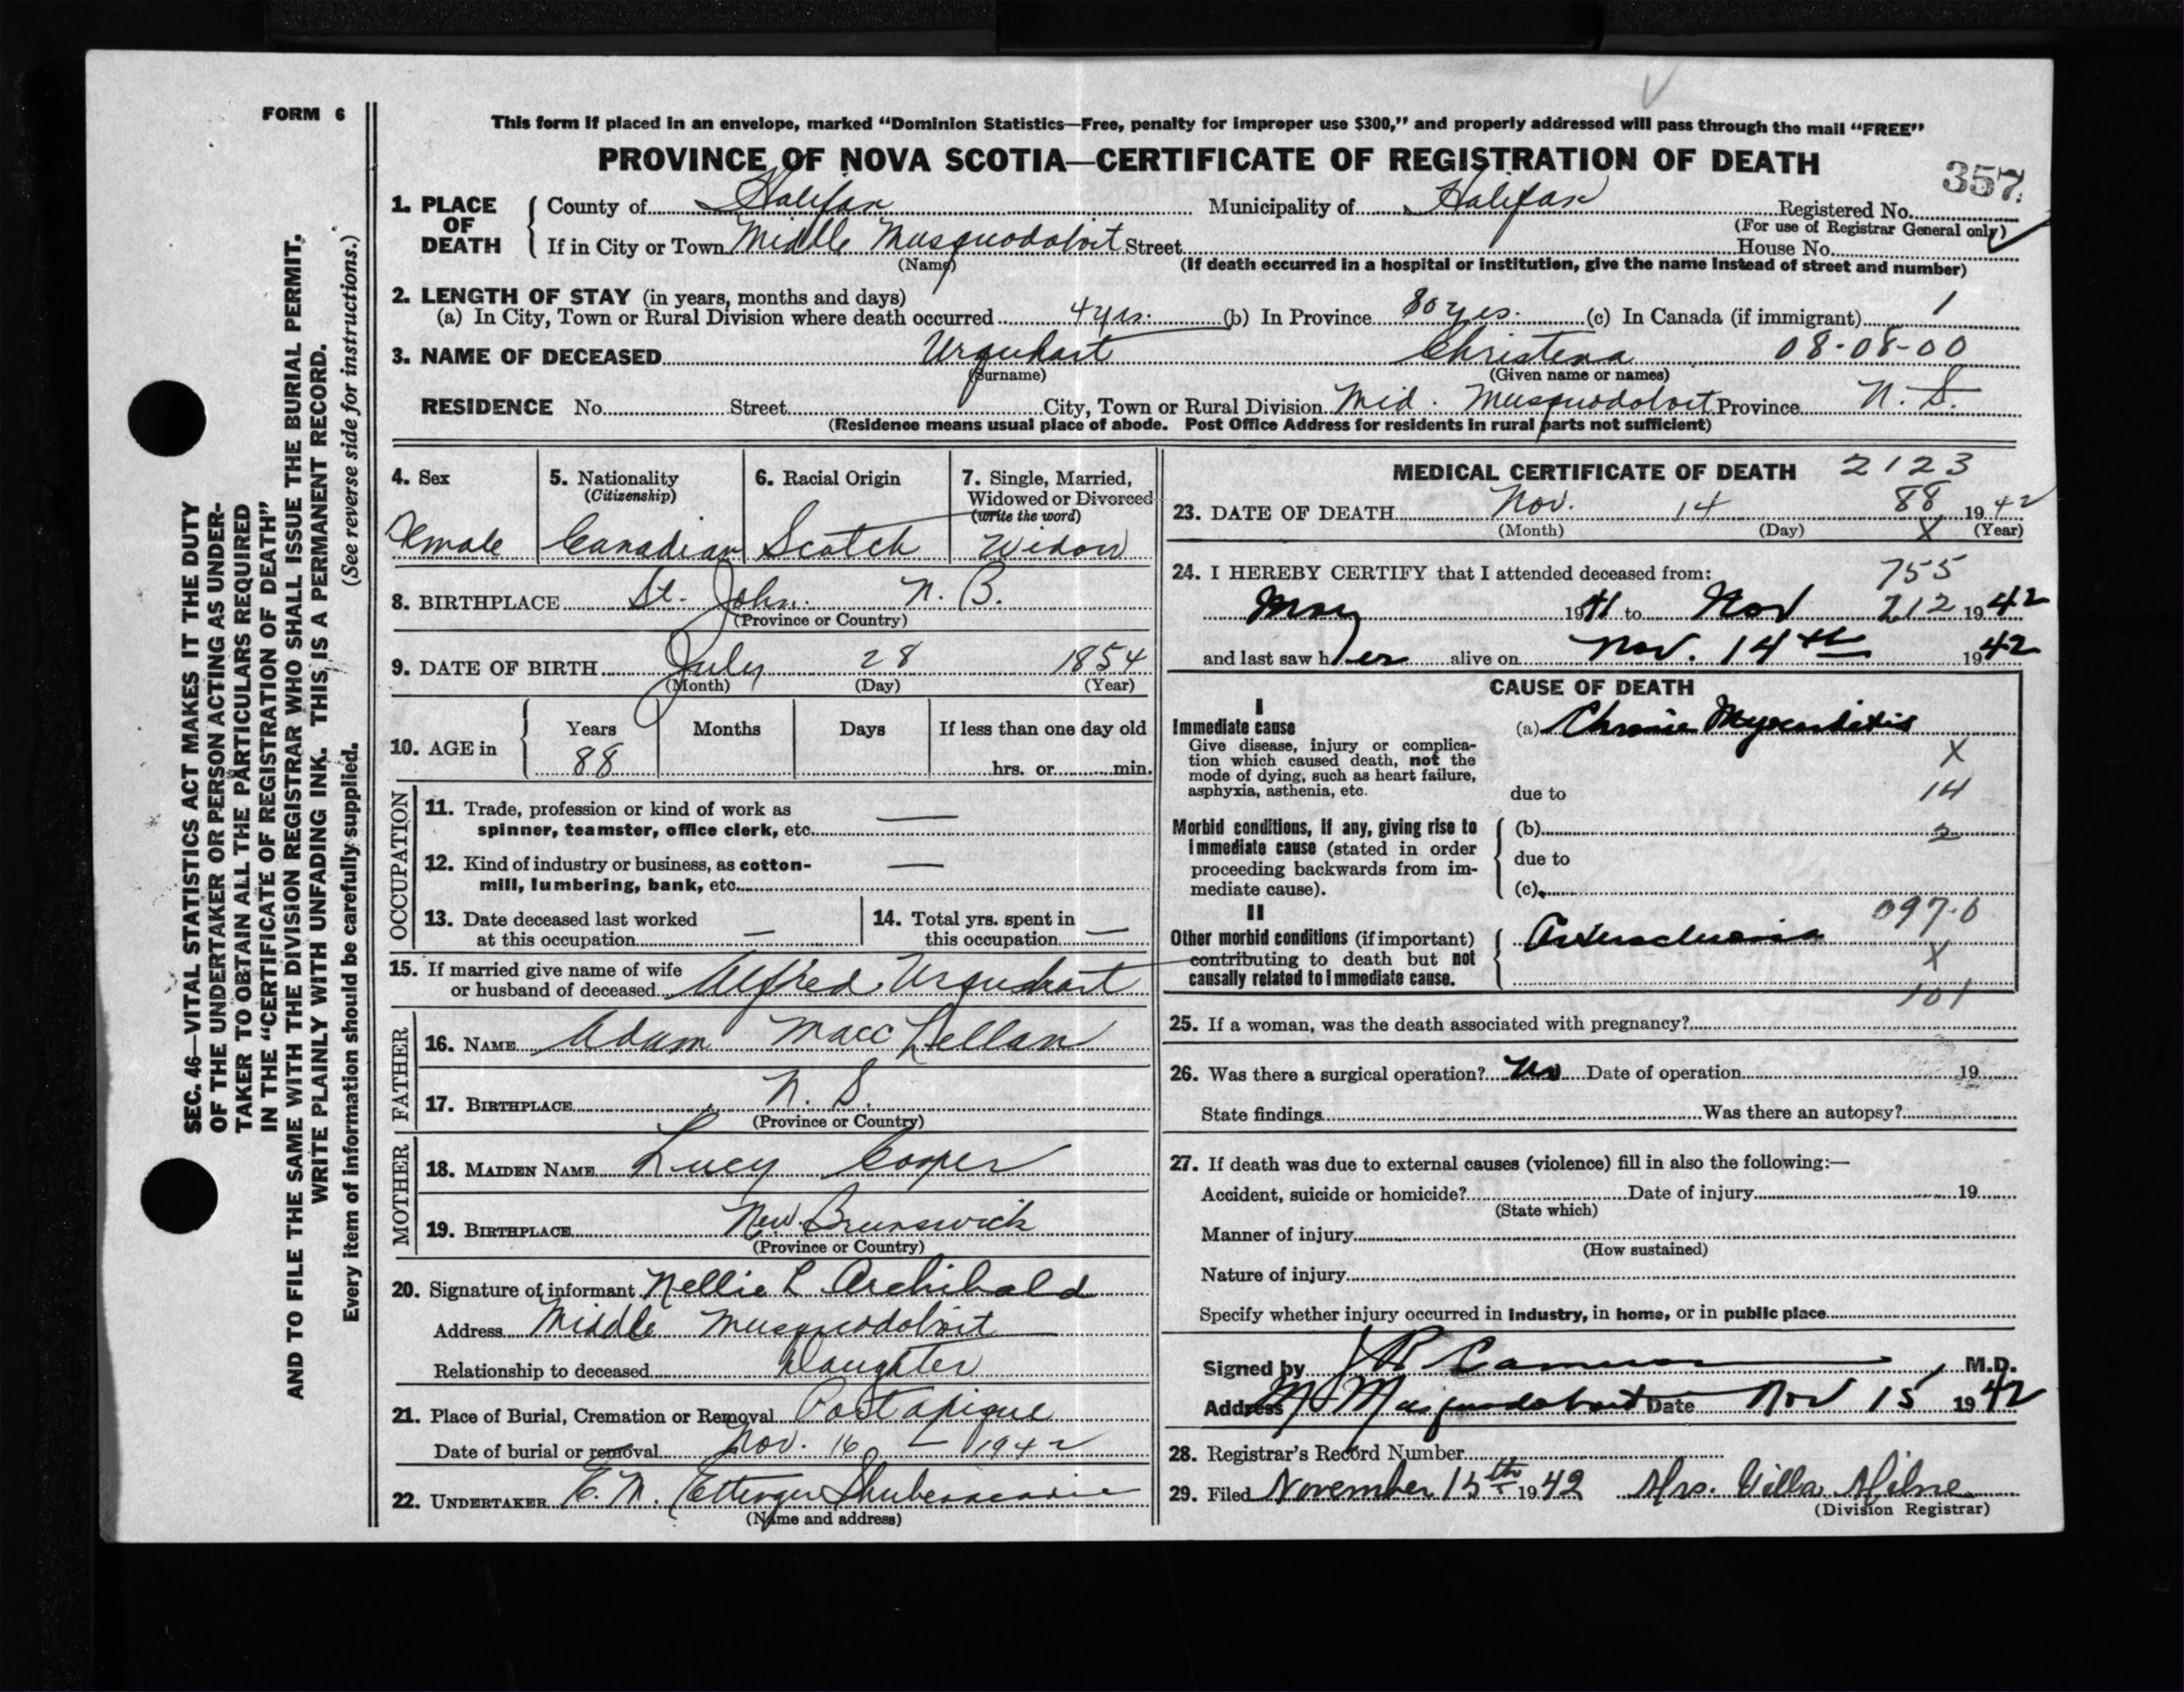 FORM 6
This form if placed in an envelope, marked "Dominion Statistics—Free, penalty for improper use $300," and properly addressed will pass through the mail "FREE"
PROVINCE OF NOVA SCOTIA—CERTIFICATE OF REGISTRATION OF DEATH
357.
1. PLACE OF DEATH
County of Halifax Municipality of Halifax Registered No.
(For use of Registrar General only)
If in City or Town Middle Musquodoboit Street House No.
(Name) (If death occurred in a hospital or institution, give the name instead of street and number)
2. LENGTH OF STAY (in years, months and days)
(a) In City, Town or Rural Division where death occurred 4 yrs. (b) In Province 80 yrs. (c) In Canada (if immigrant) 1
3. NAME OF DECEASED Urquhart Christena 08-08-00
(Surname) (Given name or names)
RESIDENCE No. Street City, Town or Rural Division Mid. Musquodoboit Province N.S.
(Residence means usual place of abode. Post Office Address for residents in rural parts not sufficient)
4. Sex
Female
5. Nationality
(Citizenship)
Canadian
6. Racial Origin
Scotch
7. Single, Married,
Widowed or Divorced
(write the word)
Widow
8. BIRTHPLACE St. John. N. B.
(Province or Country)
9. DATE OF BIRTH July 28 1854
(Month) (Day) (Year)
10. AGE in
Years Months Days If less than one day old
88 hrs. or min.
OCCUPATION
11. Trade, profession or kind of work as
spinner, teamster, office clerk, etc. —
12. Kind of industry or business, as cotton-
mill, lumbering, bank, etc. —
13. Date deceased last worked
at this occupation —
14. Total yrs. spent in
this occupation —
15. If married give name of wife
or husband of deceased Alfred Urquhart
FATHER
16. NAME Adam MaccLellan
17. BIRTHPLACE N. S.
(Province or Country)
MOTHER
18. MAIDEN NAME Lucy Cooper
19. BIRTHPLACE New Brunswick
(Province or Country)
20. Signature of informant Nellie L Archibald
Address Middle Musquodoboit
Relationship to deceased Daughter
21. Place of Burial, Cremation or Removal Portapique
Date of burial or removal Nov. 16 — 1942
22. UNDERTAKER E. M. Ettinger Shubenacadie
(Name and address)
MEDICAL CERTIFICATE OF DEATH 2123
88
23. DATE OF DEATH Nov. 14 1942
(Month) (Day) X (Year)
24. I HEREBY CERTIFY that I attended deceased from: 755
May 1941 to Nov 212 1942
and last saw h er alive on Nov. 14th 1942
CAUSE OF DEATH
I
Immediate cause
(a) Chronic Myocarditis
Give disease, injury or complica-
tion which caused death, not the
mode of dying, such as heart failure,
asphyxia, asthenia, etc.
X
due to 14
Morbid conditions, if any, giving rise to
immediate cause (stated in order
proceeding backwards from im-
mediate cause).
(b) 2
due to
(c)
097.0
II
Other morbid conditions (if important)
contributing to death but not
causally related to immediate cause.
Arteriosclerosis
X
101
25. If a woman, was the death associated with pregnancy?
26. Was there a surgical operation? No Date of operation 19
State findings Was there an autopsy?
27. If death was due to external causes (violence) fill in also the following:—
Accident, suicide or homicide? Date of injury 19
(State which)
Manner of injury
(How sustained)
Nature of injury
Specify whether injury occurred in industry, in home, or in public place
Signed by J R Cameron, M.D.
Address M Musquodoboit Date Nov 15 1942
28. Registrar's Record Number
29. Filed November 15th 1942 Mrs. Willa Milne
(Division Registrar)
SEC. 46—VITAL STATISTICS ACT MAKES IT THE DUTY
OF THE UNDERTAKER OR PERSON ACTING AS UNDER-
TAKER TO OBTAIN ALL THE PARTICULARS REQUIRED
IN THE "CERTIFICATE OF REGISTRATION OF DEATH"
AND TO FILE THE SAME WITH THE DIVISION REGISTRAR WHO SHALL ISSUE THE BURIAL PERMIT.
WRITE PLAINLY WITH UNFADING INK. THIS IS A PERMANENT RECORD.
Every item of information should be carefully supplied. (See reverse side for instructions.)